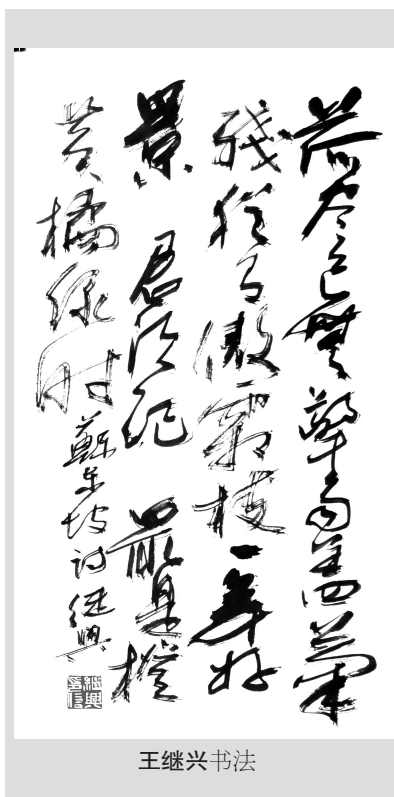 荷尽已無擎雨盖菊
残犹有傲霜枝一年好
景君须记最是橙
黄橘绿时蘇东坡诗继兴
王继兴书法